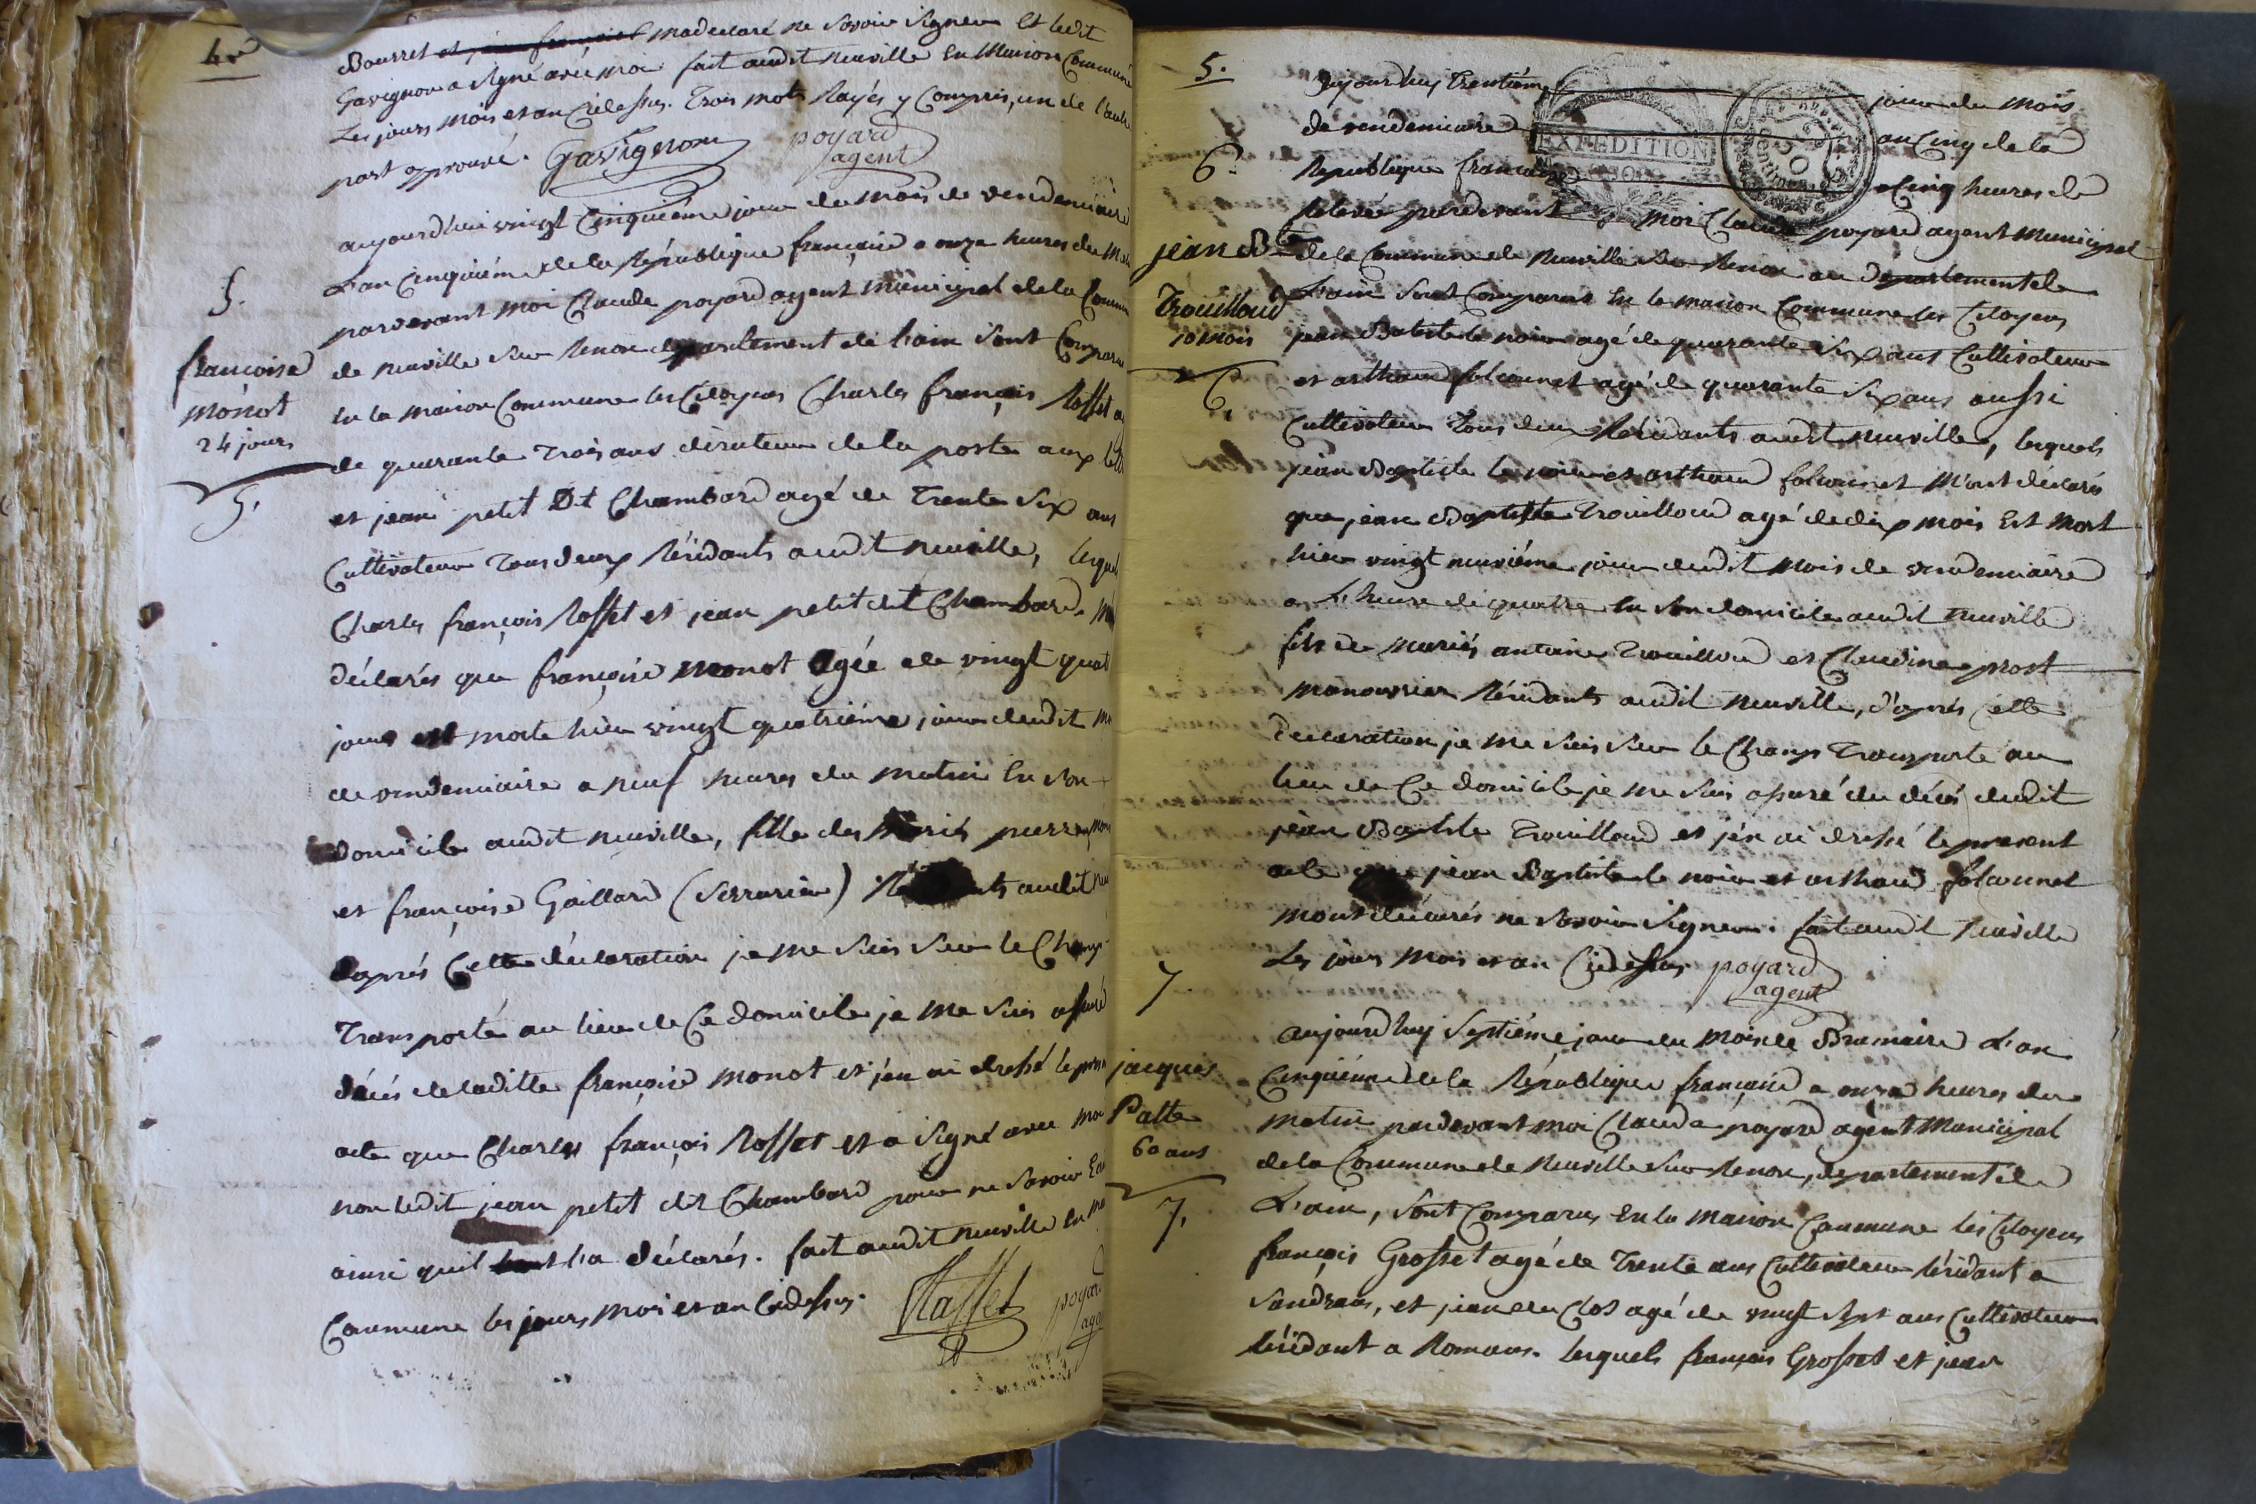 4e
Bourret et jean françois madeclaré ne Savoir Signer Et ledit
Gavignon a signé avec moi fait audit neuville En Maison Commune
Les jours mois et an Cidessus. Trois mots Rayés y Compris, un de l'autre
part approuvé. Gavignon poyard
agent
aujourdhui vingt Cinquiéme jour du mois de vendemiaire
L'an Cinquiéme de la République française a onze heures du
pardevant moi Claude poyard agent municipal de la Commune
de neuville Sur Renon département de l'ain Sont Comparu
En la maison Commune les Citoyens Charles françois Rosset
de quarante Trois ans diréteur de la poste aux
et jean petit Dt Chambard agé de Trente Six ans
Cultivateur Tous deux Résidants audit neuville, lesquels
Charles françois Rosset et jean petit dit Chambard
déclarés que françoise monot agée de vingt quat
jours est morte hier vingt quatriéme jour dudit
de vendemiaire a neuf heures du matin En Son
domicile audit neuville, fille des Mariés pierre
et françoise Gaillard (Serrurier) audit
daprés Cette déclaration je me Suis Sur le Champ
Transporté au lieu de Ce domicile je me Suis assuré
décés de laditte françoise monot et j'en ai dressé le
acte que Charles françois Rosset et a Signé avec moi
non ledit jean petit dit Chambard pour ne Savoir
ainsi quil l'a déclarés. fait audit neuville En
Commune les jours, mois et an Cidessus.
Rasset poyard
agent
5.
françoise
monot
24 jours
5.
5.
aujourdhuy Trentiéme jour du mois
de vendemiaire an Cinq de la
République française a Cinq heures de
Relevée pardevant moi Claude poyard agent Municipal
de la Commune de Neuville Sur Renon au département de
L'ain Sont Comparus En la maison Commune les Citoyens
jean Batiste le noir agé de quarante Six ans Cultivateur
et arthaud folconnet agé de quarante Six ans aussi
Cultivateur Tous deux Résidants audit neuville, lesquels
jean Baptiste le noir et arthaud folconnet M'ont déclarés
que jean Baptiste Trouilloud agé de dix mois Est Mort
hier vingt neuviéme jour dudit mois de vendemiaire
a L'heure de quatre En Son domicile audit neuville
fils de mariés antoine Trouilloud et Claudine prost
manouvrier Résidants audit neuville, d'après Cette
Declaration je me Suis Sur le Champ Transporté au
lieu de Ce domicile je me Suis assuré du décés dudit
jean Baptiste Trouilloud et j'en ai dressé le present
acte que jean Baptiste le noir et arthaud folconnet
mont déclarés ne Savoir Signer. fait audit Neuville
Les jours Mois et an Cidessus poyard
agent
aujourdhuy Septiéme jour du mois de Brumaire L'an
Cinquiéme de la République française a onze heures du
matin pardevant moi Claude poyard agent Municipal
de la Commune de Neuville Sur Renon, département de
L'ain, Sont Comparus En la maison Commune les Citoyens
françois Grosset agé de Trente ans Cultivateur Résidant a
Sandrans, et jean du Clos agé de vingt Sept ans Cultivateur
Résidant a Romans. lesquels françois Grosset et jean
6.
jean Bte
Trouilloud
10 mois
6.
7
jacques
Patte
60 ans
7.
EXPEDITION